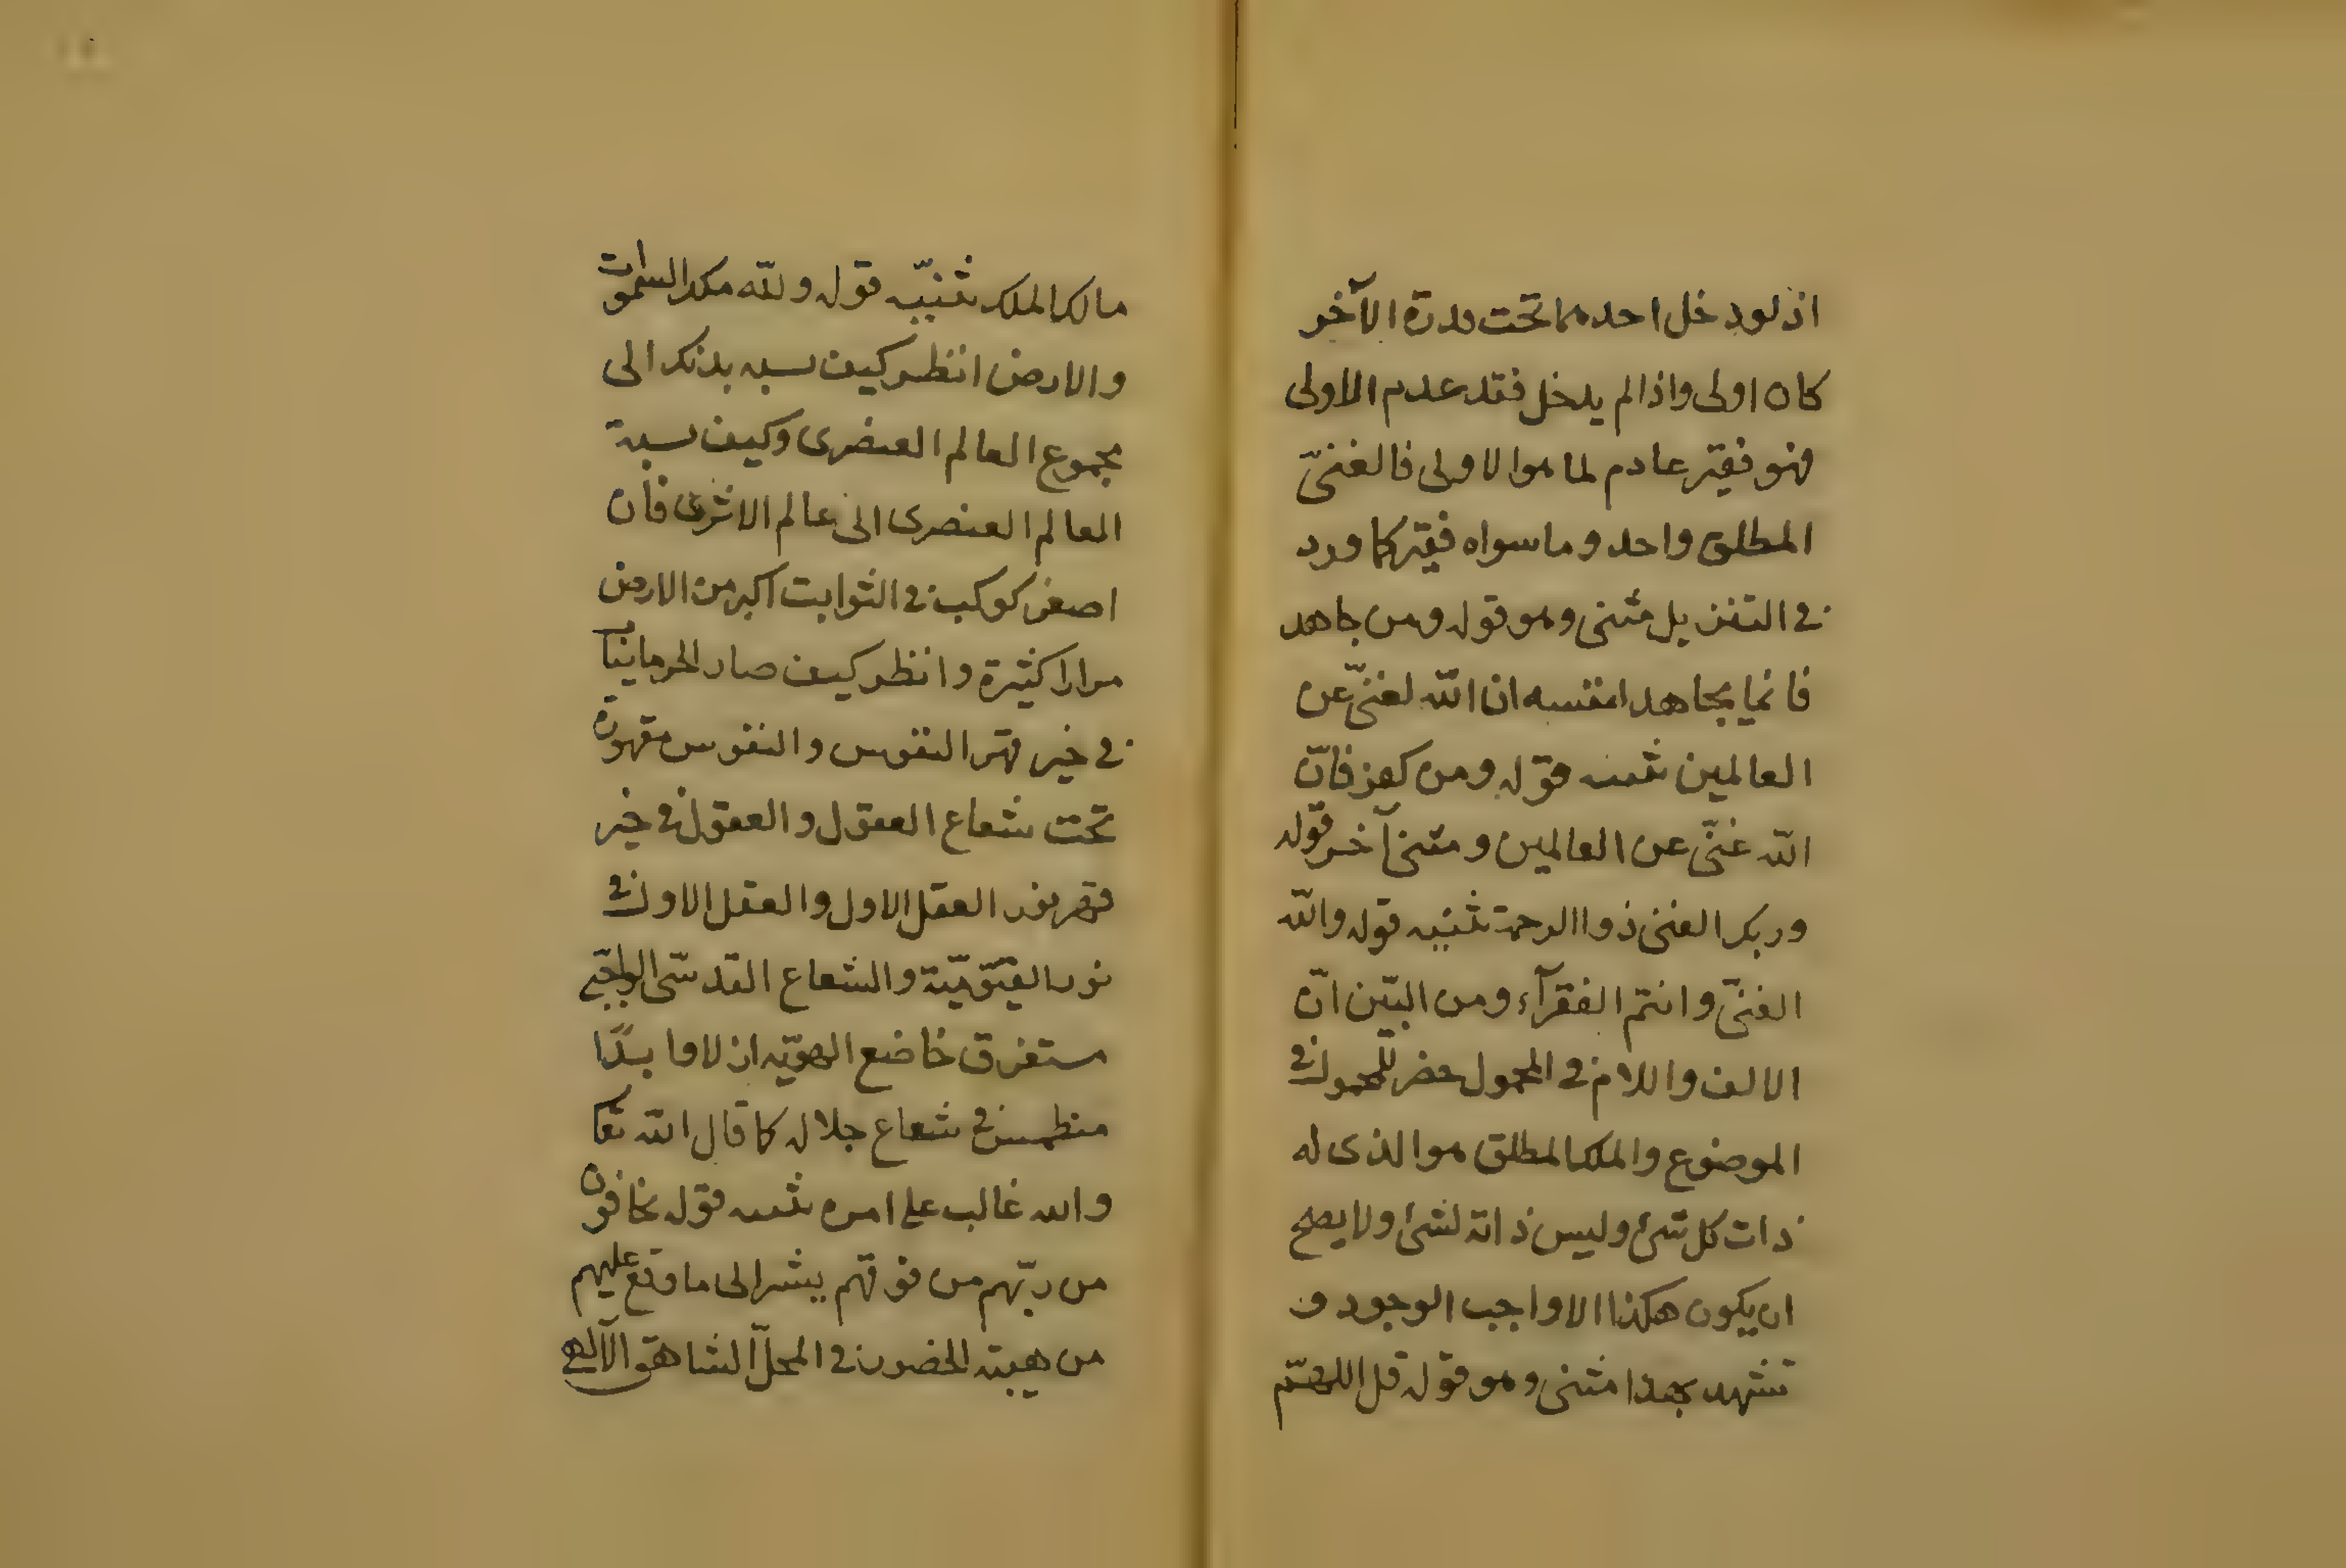 اذ لو دخل احدهما تحت قدرة الآخر
كان اولى واذا لم يدخل فقد عدم الاولى
فهو فقير عادم لما هو الاولى فالغنىّ
المطلق واحد وما سواه فقير كما ورد
فى التنزيل مثنى وهو قوله ومن جاهد
فانما يجاهد لنفسه ان الله لغنىّ عن
العالمين تثنيه قوله ومن كفر فانّ
الله غنىّ عن العالمين ومثنى آخر قوله
وربك الغنى ذوا الرحمة تثنيه قوله والله
الغنىّ وانتم الفقرآء ومن البيّن انّ
الالف واللام فى المحمول حصر للمحمول فى
الموضوع والملك المطلق هو الذى له
ذات كل شئ وليس ذاته لشئ ولا يصح
ان يكون هكذا الا واجب الوجود و
تشهد بهذا مثنى وهو قوله قل اللهمّ
مالك الملك تثنيّه قوله ولله ملك السموات
والارض انظر كيف نسبة بدنك الى
مجموع العالم العنصرى وكيف نسبة
العالم العنصرى الى عالم الاثيرى فان
اصغر كوكب فى الثوابت اكبر من الارض
مرارا كثيرة وانظر كيف صار
فى حيز قهر النفوس والنفوس مقهورة
تحت شعاع العقول والعقول فى حيز
قهر نور العقل الاول والعقل الاول فى
نور القيّوميّة والشعاع القدسّى الواجبى
مستغرق خاضع الهويّه اذ لاقا
منطمس فى شعاع جلاله كما قال الله تعا
والله غالب على امره تثنيه قوله يخافون
من ربّهم من فوقهم يشير الى ما وقع عليهم
من هيبته الحضور فى المحلّ الشاهق الآلهى